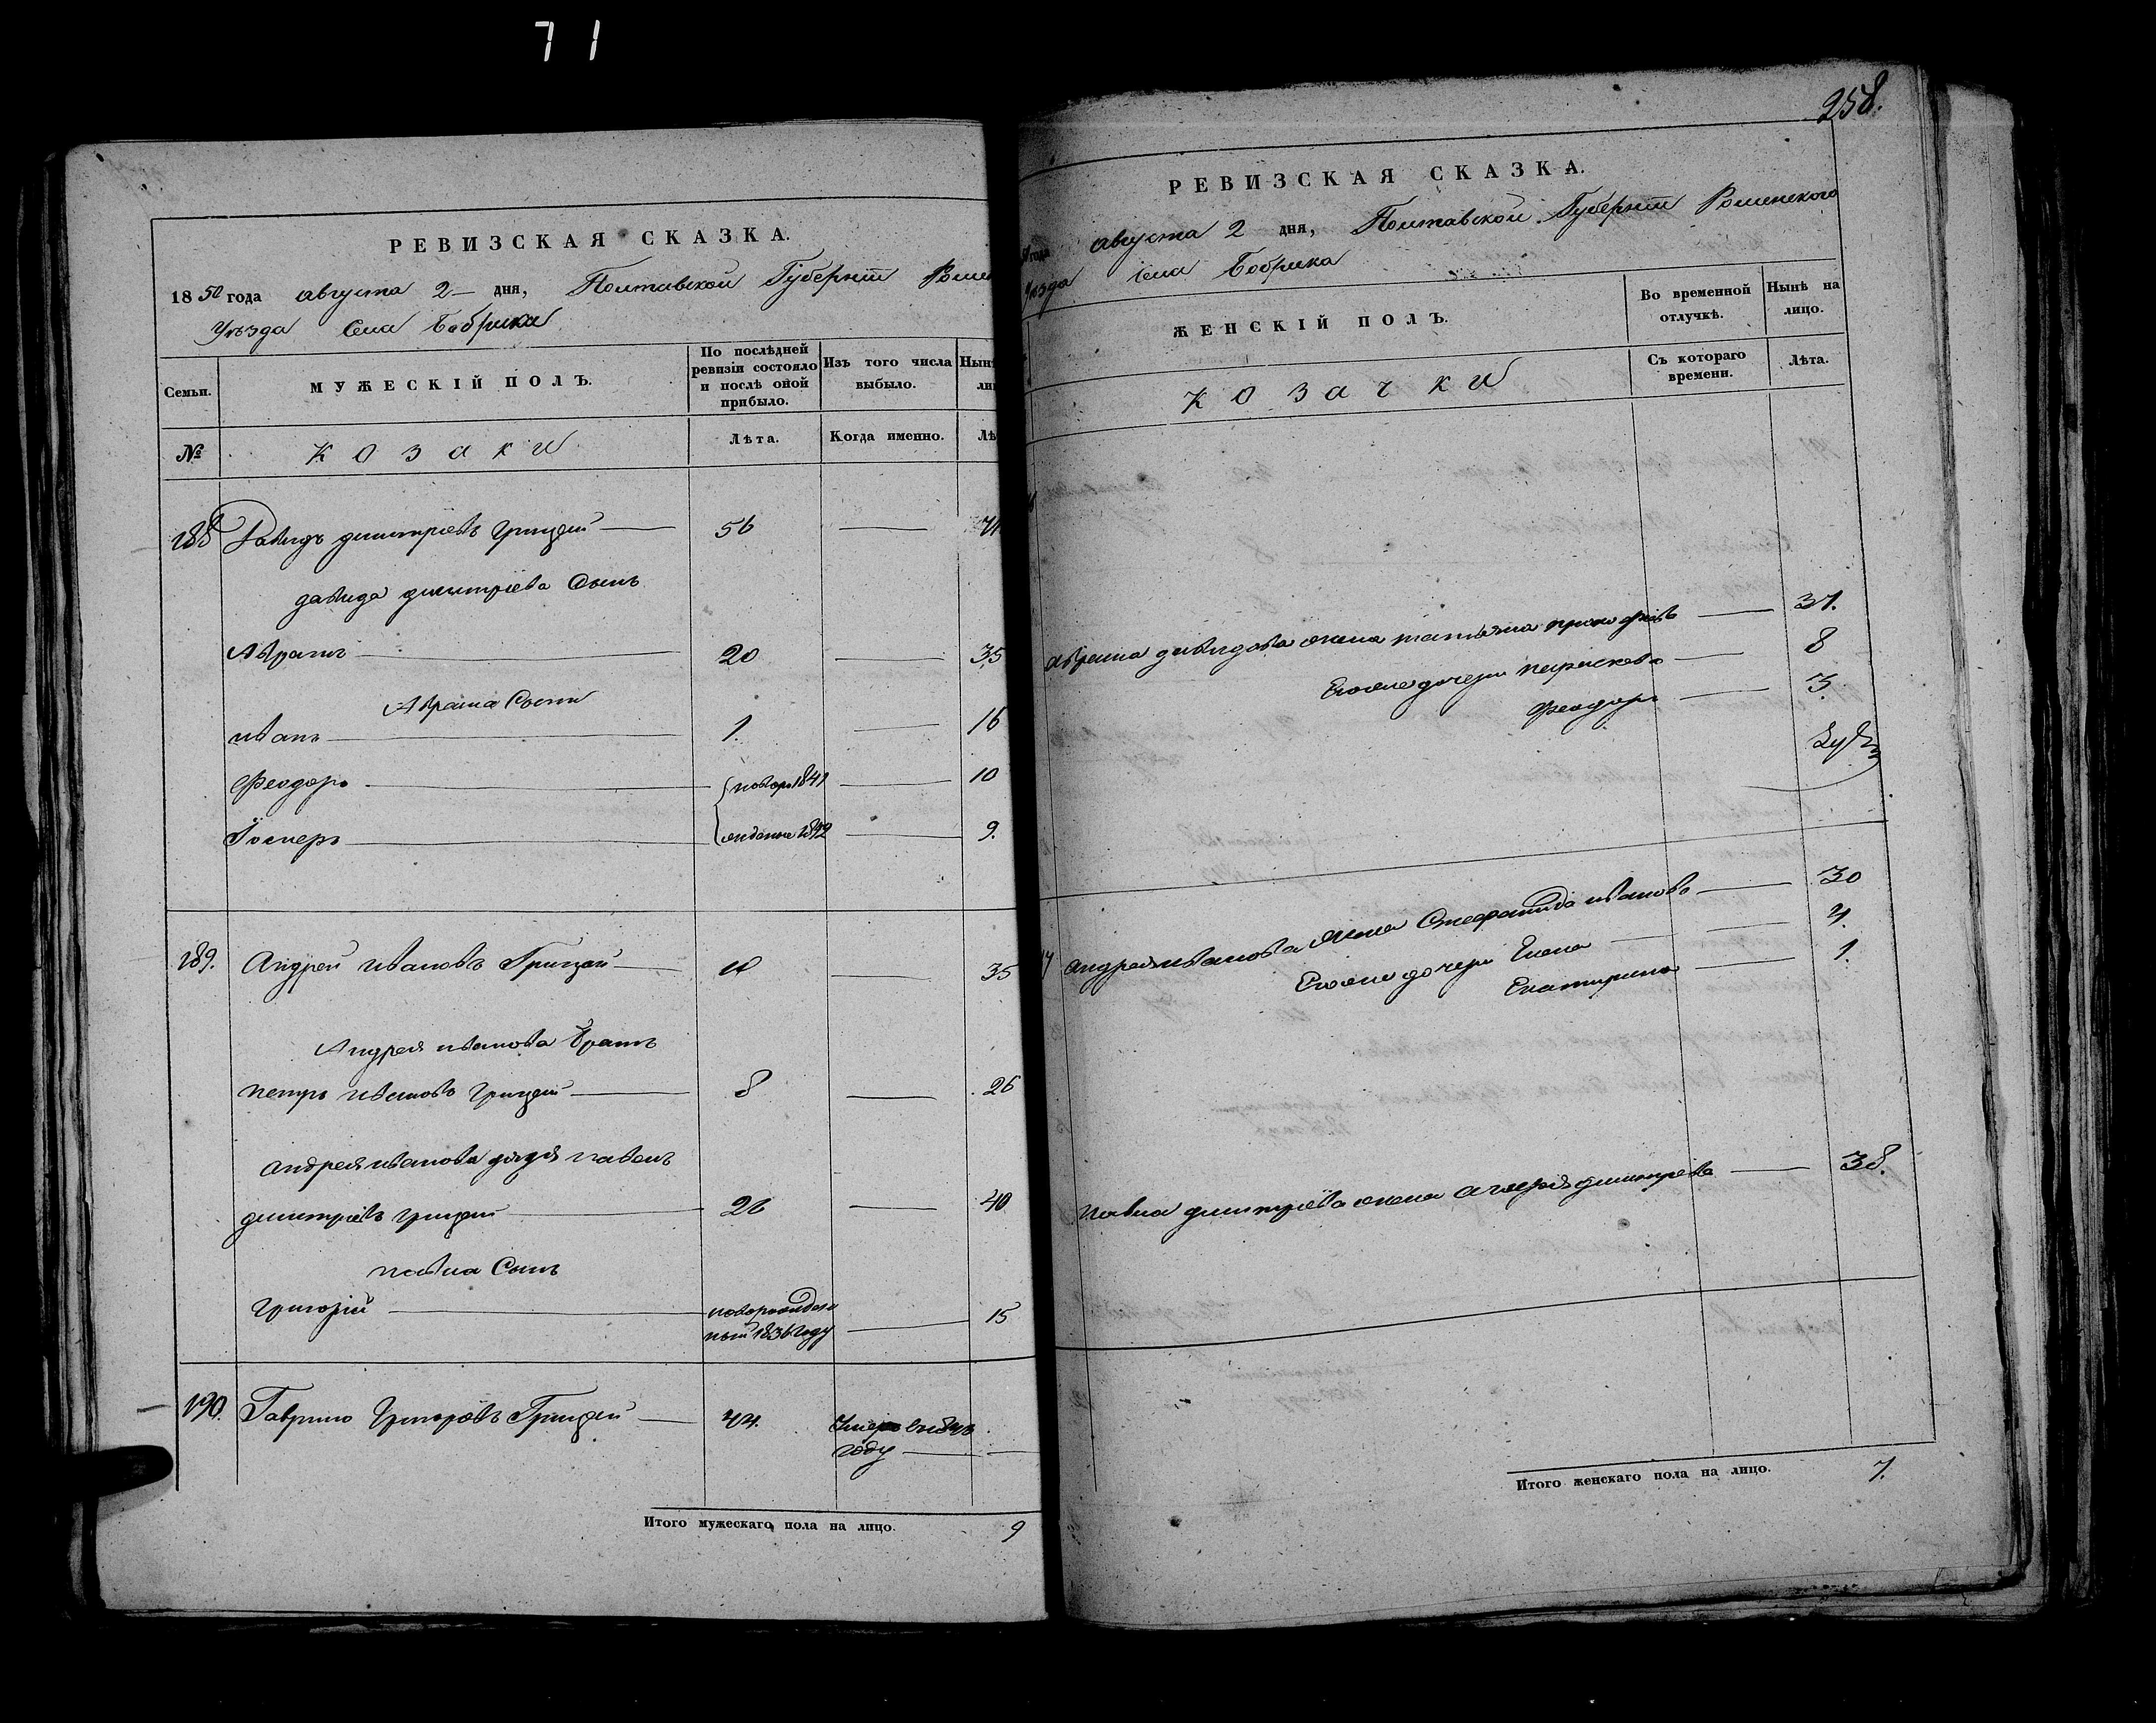 71
РЕВИЗСКАЯ СКАЗКА.
1850 года августа 2 дня, Полтавской Губернiи Ромен
Уѣзда Села Бобрика
Семьи.
МУЖЕСКІЙ ПОЛЪ.
По послѣдней ревизіи состояло и послѣ оной прибыло.
Изъ того числа выбыло.
№
Козаки
Лѣта.
Когда именно.
188 Давидъ димитріевъ Грицай 56
давида димитріева Сынъ
Аврамъ 20 35
Аврама Сыны
иванъ 1. 16
Феодоръ новоро 1841 10
Іосифъ жденные 1842 9.
189. Андрей ивановъ Грицай 35
Андрея иванова братъ
петръ ивановъ грицай 8 26
андрея иванова дядя павелъ
димитріевъ грицай 26 40
павла Сынъ
григорій новорожден
ный 1836 году 15
190. Гаврило Григорьевъ Грицай 44.
Умеръ въ
году
Итого мужескаго пола на лицо. 9
258.
РЕВИЗСКАЯ СКАЗКА.
года августа 2 дня, Полтавской Губернiи Роменского
Уѣзда Села Бобрика
ЖЕНСКІЙ ПОЛЪ.
Во временной отлучкѣ.
Нынѣ на лицо.
Козачки
Съ котораго времени.
Лѣта.
Аврама давидова жена татьяна 31.
Его же дочери параскева 8
Феодора 3.
андрея иванова жена Стефанида иванова 30
Его же дочери Елена 4.
Екатерина 1.
павла димитріева жена димитріева 38.
Итого женскаго пола на лицо. 7.